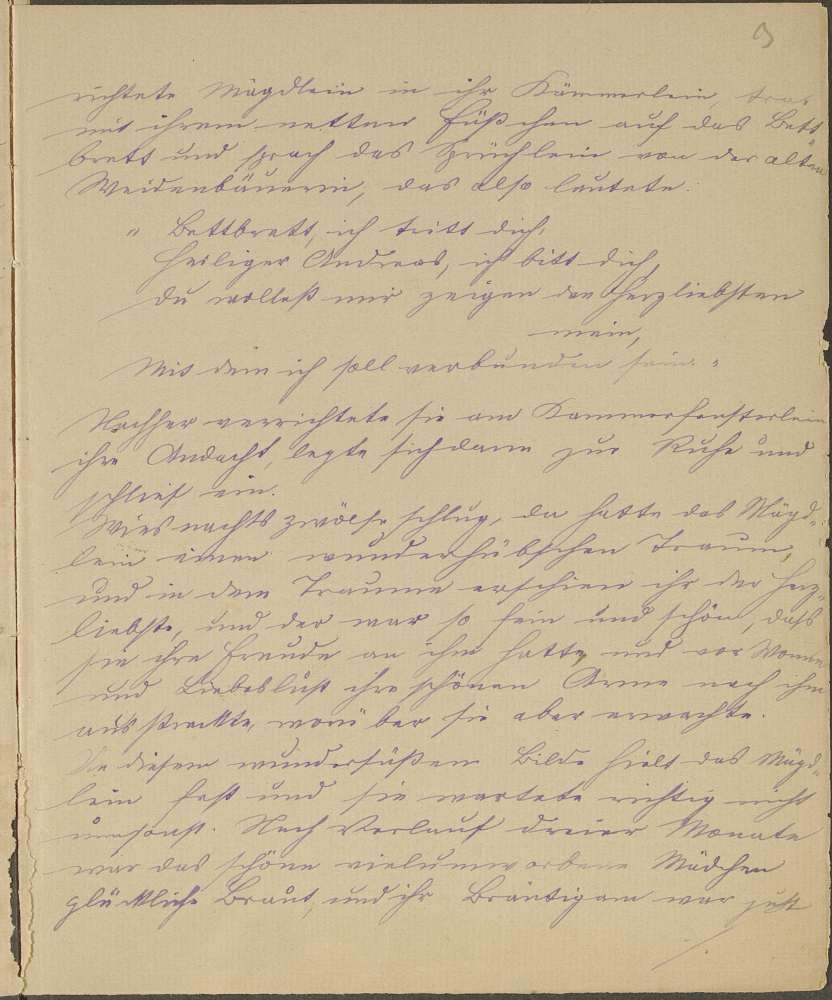 3
richtete Mägdlein in ihr Kämmerlein, trat
mit ihrem netten Füßchen auf das Bett-
brett und sprach das Sprüchlein von der alten
Weidenbäuerin, das also lautete:
" Bettbrett, ich tritt dich,
Heiliger Andreas, ich bitt dich,
Du wollest mir zeigen den Herzliebsten
mein,
Mit dem ich soll verbunden sein. "
Nachher verrichtete sie am Kammerfensterlein
ihre Andacht, legte sich dann zur Ruhe und
schlief ein.
Wies nachts zwölfe schlug, da hatte das Mägd-
lein einen wunderhübschen Traum,
und in dem Traume erschien ihr der Herz-
liebste, und der war so fein und schön, dass
sie ihre Freude an ihm hatte, und vor Wonne
und Liebeslust ihre schönen Arme nach ihm
ausstreckte, worüber sie aber erwachte.
An diesem wundersüßen Bilde hielt das Mägd-
lein fest und sie wartete richtig nicht
umsonst. Nach Verlauf dreier Monate
war das schöne vielumworbene Mädchen
glückliche Braut, und ihr Bräutigam war just